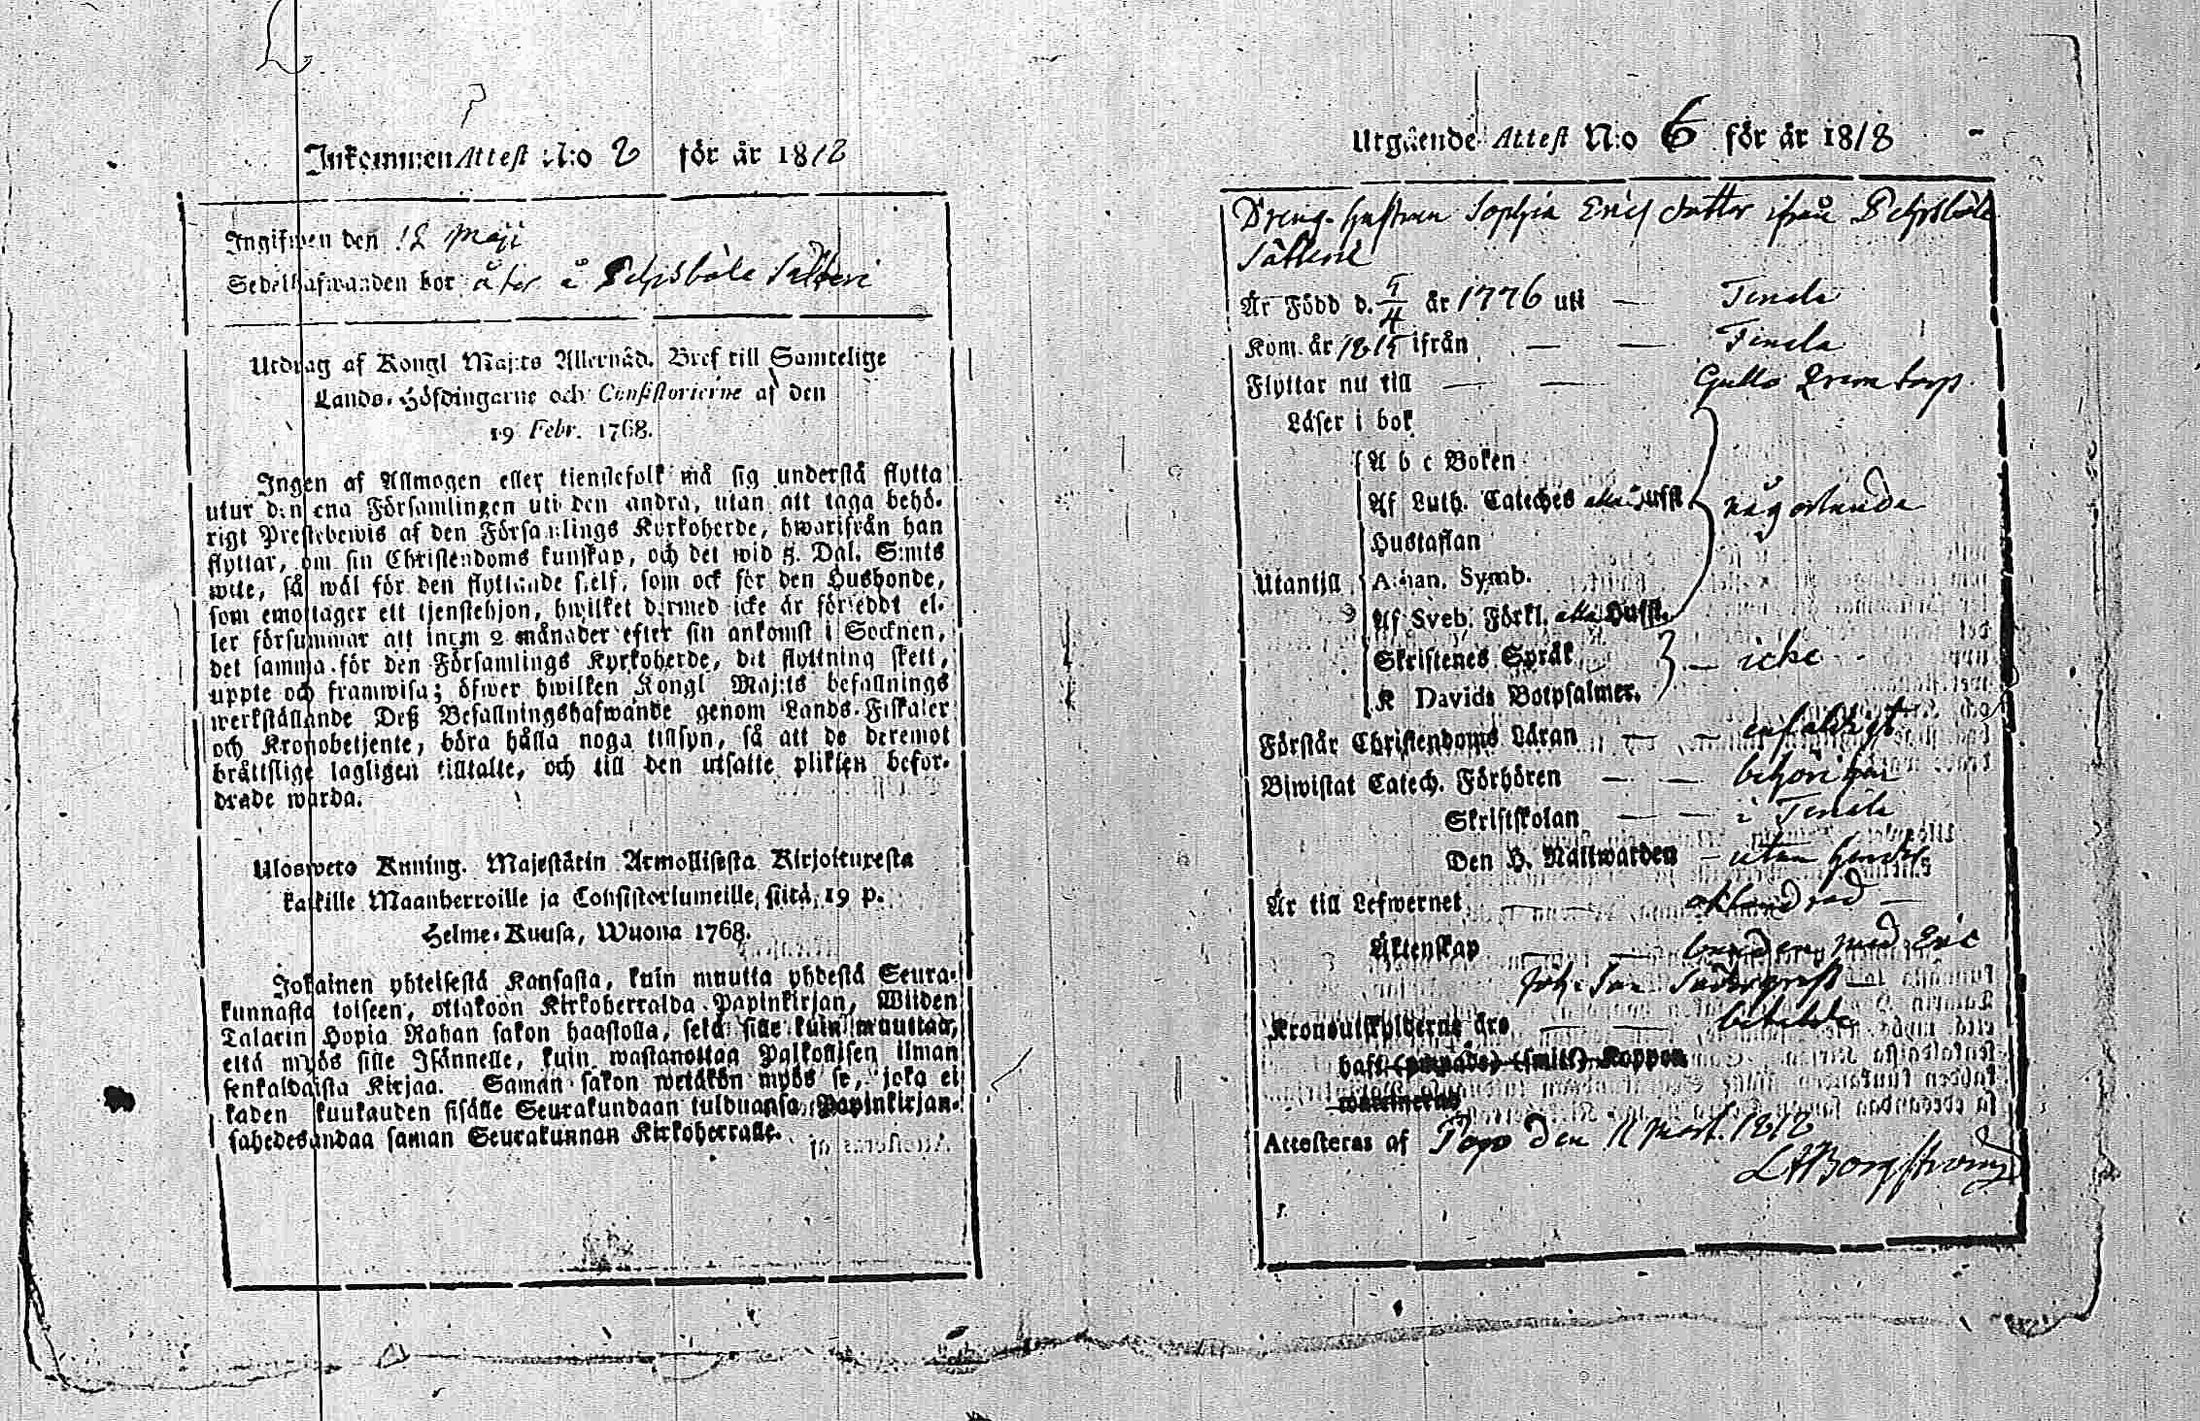 Inkommen Attest N:o 2 för år 1818
Ingifwen den 12 Maji
Sedelhafwanden bor åter å
Utdrag af Kongl Maj:ts Allernåd. Bref till Samtelige
Lands-Höfdingarne och Consistorierne af den
19 Febr. 1768.
Ingen af Allmogen eller tienstefolk må sig understå flytta
utur den ena Församlingen uti den andra, utan att taga behö-
rigt Prestebewis af den Församlings Kyrkoherde, hwarifrån han
flyttar, om sin Christendoms kunskap, och det wid 5. Dal. S:mts
wite, så wäl för den flyttande self, som ock för den Husbonde,
som emottager ett tjenstehjon, hwilket dermed icke är försedt el-
ler försummar att inom 2 månader efter sin ankomst i Socknen,
det samma för den Församlings Kyrkoherde, dit flyttning skett,
uppte och framwisa; öfwer hwilken Kongl Maj:ts befallnings
werkställande Deß Befallningshafwande genom Lands-Fiskaler
och Kronobetjente, böra hålla noga tillsyn, så att de deremot
bråttslige lagligen tilltalte, och till den utsatte plikten befor-
drade warda.
Ulosweto Kuning. Majestätin Armollisesta Kirjoituxesta
kaikille Maanherroille ja Consistoriumeille, siitä 19 p.
Helme-Kuusa, Wuona 1768.
Jokainen yhteisestä Kansasta, kuin muutta yhdestä Seura-
kunnasta toiseen, ottakoon Kirkoherralda Papinkirjan, Wiiden
Talarin Hopia Rahan sakon haastolla, sekä sille kuin muuttaa,
että myös sille Isännelle, kuin wastanottaa Palkollisen ilman
senkaldaista Kirjaa. Saman sakon wetäkön myös se, joka ei
kahden kuukauden sisälle Seurakundaan tulduansa, Papinkirjan-
sahedesandaa saman Seurakunnan Kirkoherralle.
Utgående Attest N:o 6 för år 1818
Dreng-hustrun Sophia Erics dotter ifrån
Sätteri
Är Född d. 5/4 år 1776 uti — Tenala
Kom. år 1815 ifrån — — Tenala
Flyttar nu till — — Gullö
Läser i bok
A b c Boken
Af Luth. Cateches utan Hufl. någorlunda
Hustaflan
Utantill Athan. Symb.
Af Sveb. Förkl.
Skriftenes Språk — icke
K Davids Botpsalmer.
Förstår Christendoms Läran — — enfaldigt
Biwistat Catech. Förhören — — behörigen
Skriftskolan — — i Tenala
Den H. Nattwarden — utan hinder
Är till Lefwernet — oklandrad —
Äktenskap — — bunden med Eric
Joh: Son
Kronoutskylderne äro — — betalde
haft Koppor
Attesteras af Pojo den 11 Mart. 1818
Borgström